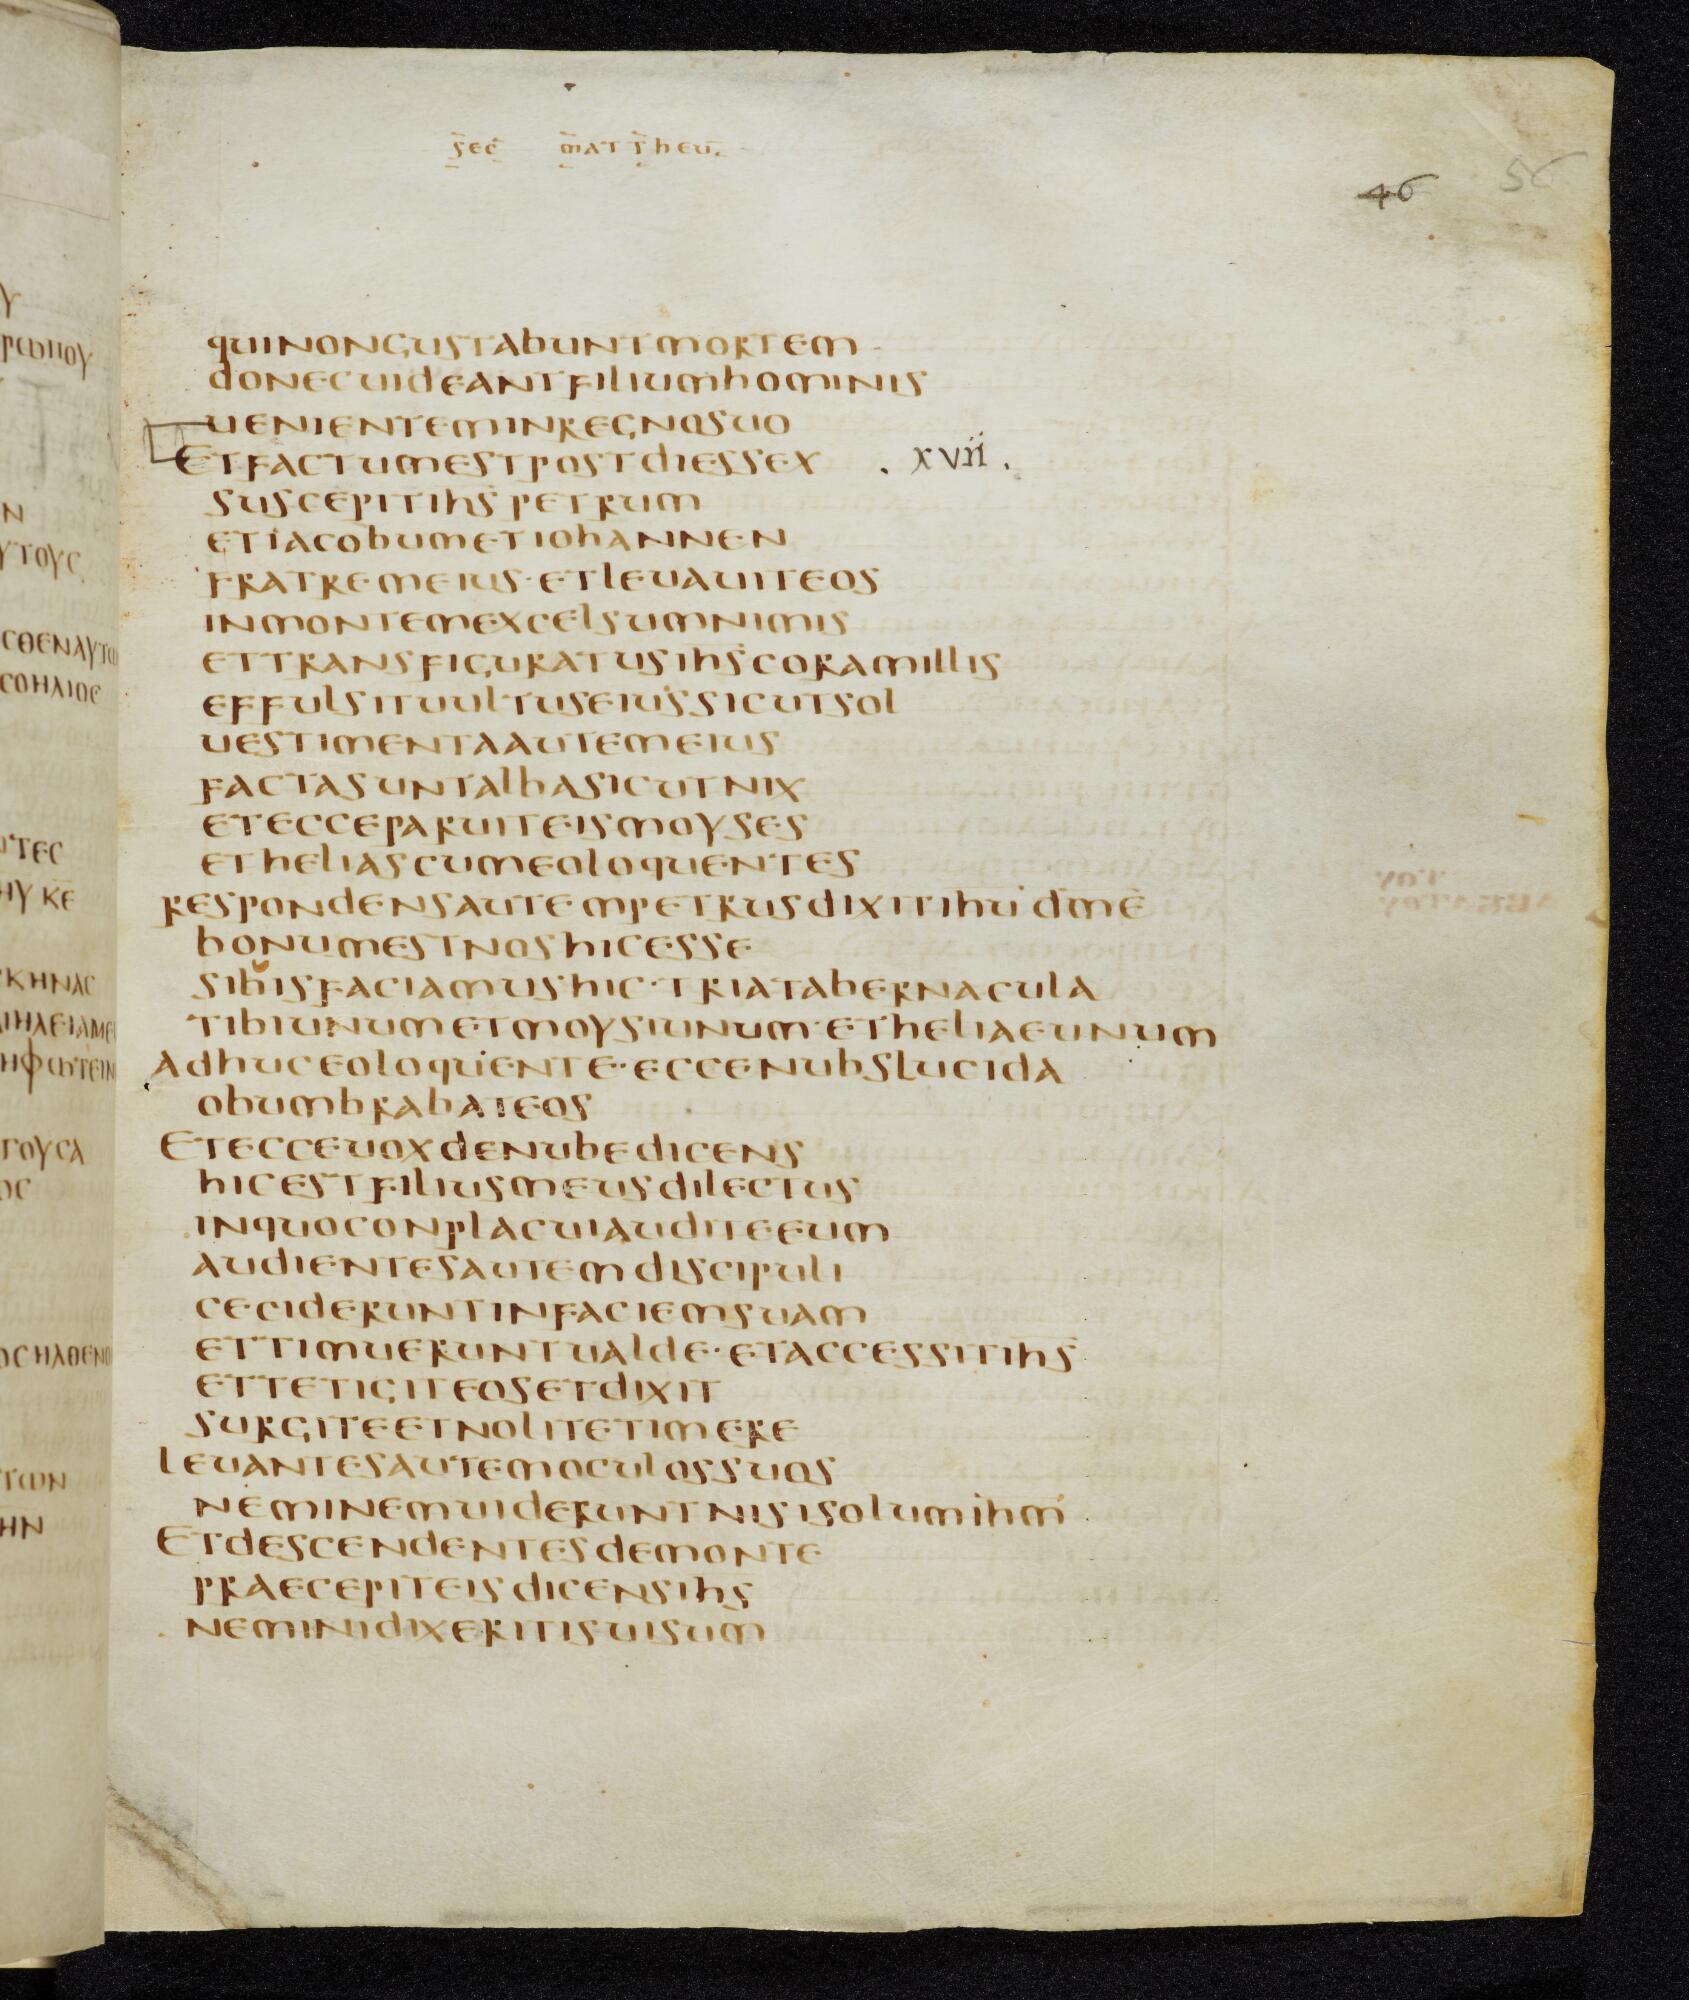 sec mattheu.
46 56
quinongustabuntmortem
donecuideantfiliumhominis
uenienteminregnosuo
Etfactumestpostdiessex . xvii .
suscepitihs̄petrum
etiacobumetiohannen
fratremeius·etleuauiteos
inmontemexcelsumnimis
ettransfiguratusihs̄coramillis
effulsituultuseiussicutsol
uestimentaautemeius
factasuntalbasicutnix
etecceparuiteismoyses
etheliascumeoloquentes
respondensautempetrusdixitihūdm̄e
bonumestnoshicesse
sibisfaciamushic·triatabernacula
tibiunumetmoysiunum·etheliaeunum
adhuceoloquente·eccenubslucida
obumbrabateos
Etecceuoxdenubedicens
hicestfiliusmeusdilectus
inquoconplacuiauditeeum
audientesautemdiscipuli
cecideruntinfaciemsuam
ettimueruntualde·etaccessitihs̄
ettetigiteosetdixit
surgiteetnolitetimere
leuantesautemoculossuos
neminemuideruntnisisolumihm̄
Etdescendentesdemonte
praecepiteisdicensihs
neminidixeritisuisum